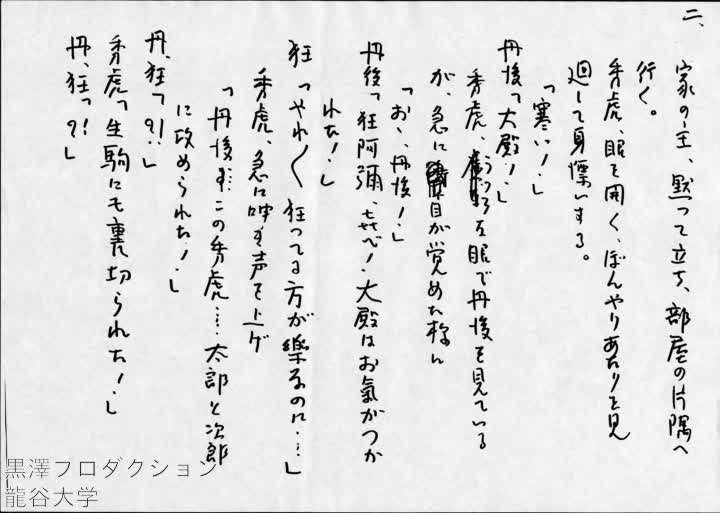 二、
家の主、黙って立ち、部屋の片隅へ
行く。
秀虎、眼を開く、ぼんやりあたりを見
廻して身慄いする。
「寒い！」
丹後「大殿！」
秀虎、うつろな眼で丹後を見ている
が、急に目が覚めた様に
「おゝ、丹後！」
丹後「狂阿彌、喜べ！大殿はお氣がつか
れた！」
狂「やれ〱狂ってる方が樂なのに……」
秀虎、急に呻く声を上げ
「丹後……この秀虎……太郎と次郎
に攻められた！」
丹、狂「？！」
秀虎「生駒にも裏切られた！」
丹、狂「？！」
黒澤プロダクション
龍谷大学